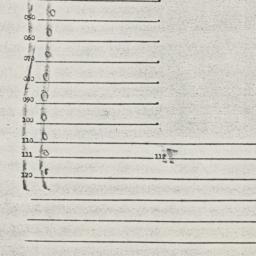 050 0
060 0
070 0
080 0
090 0
100 0
110 0
111 0 112
120